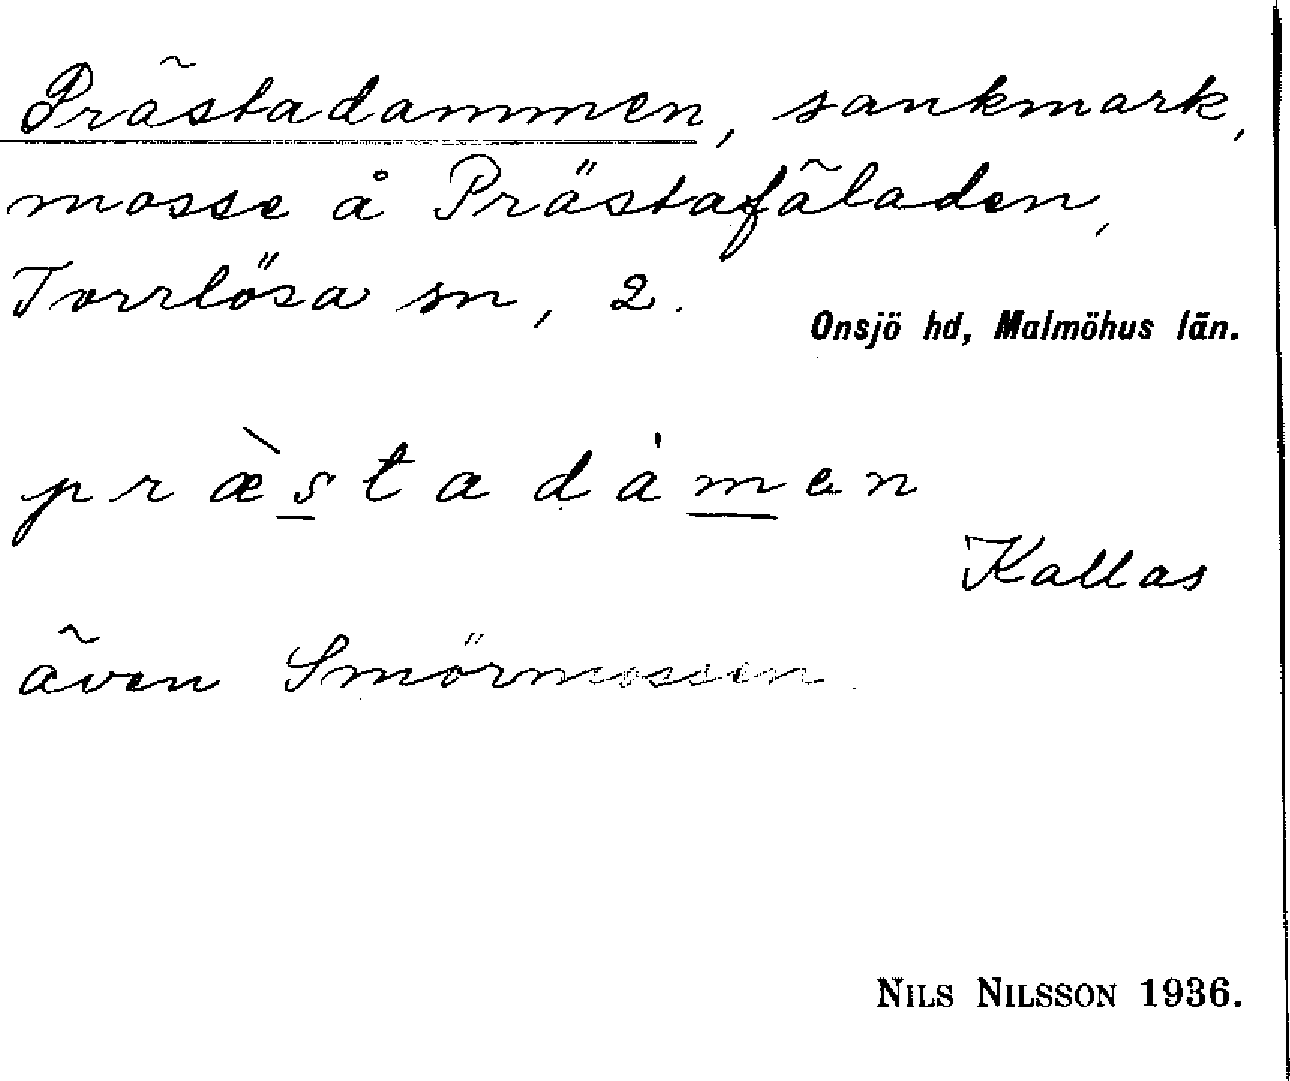 Prästadammen, sankmark,
mosse å Prästafäladen,
Torrlösa sn, 2.
Onsjö hd, Malmöhus län.
præ̀s̲tadám̲en
Kallas
även Smörmossen.
NILS NILSSON 1936.